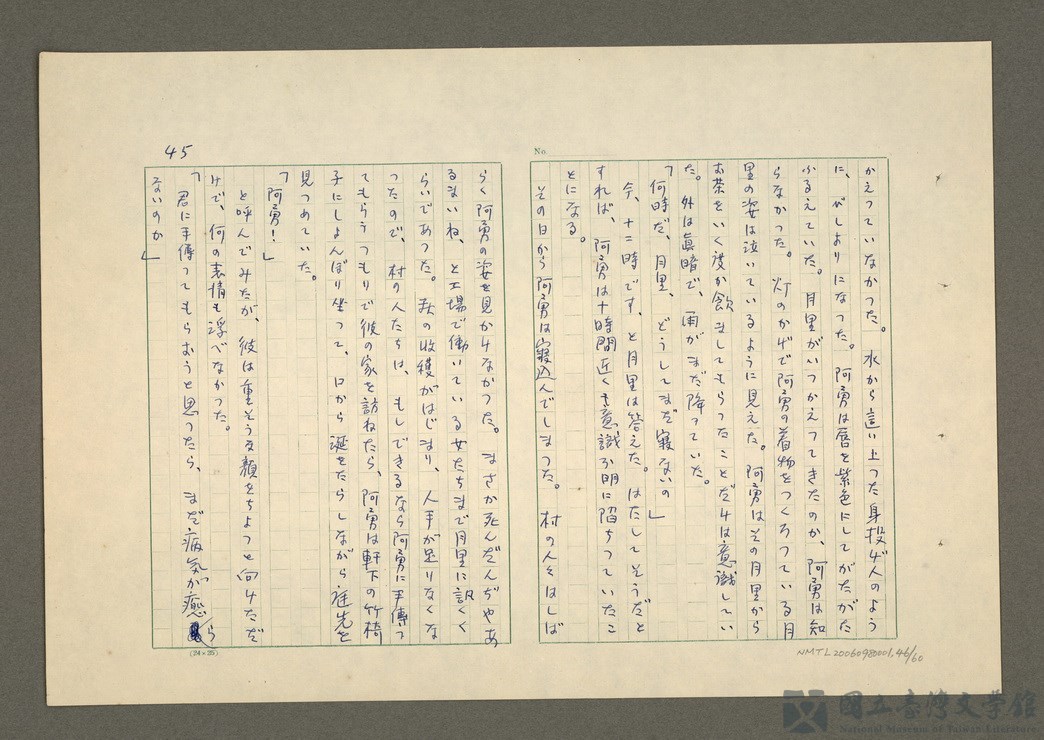 No
かえつていなかつた。 水から這い上つた身投げ人のよう
に、びしよりになつた。阿勇は唇を紫色にしてがたがた
ふるえていた。月里がいつかえつてきたのか、阿勇は知
らなかつた。 灯のかげで阿勇の着物をつくろつている月
里の姿は泣いているように見えた。阿勇はその月里から
お茶をいく度か飲ましてもらつたことだけは意識してい
た。外は眞暗で、雨がまだ降つていた。
「何時だ、月里、どうしてまだ寝ないの」
今、十二時です、と月里は答えた。はたしてそうだと
すれば、阿勇は十時間近くも意識不明に陷ちつていたこ
とになる。
その日から阿勇は寢込んでしまつた。 村の人々はしば
45
らく阿勇の姿を見かけなかつた。まさか死んだんぢやあ
るまいね、と工場で働いている女たちまで月里に訊くく
らいであつた。秋の收穫がはじまり、人手が足りなくな
つたので、村の人たちは、もしできるなら阿勇に手傳つ
てもらうつもりで彼の家を訪ねたら、阿勇は軒下の竹椅
子にしよんぼり坐つて、口から涎をたらしながら庭先を
見つめていた。
「阿勇!」
と呼んでみたが、彼は重そうな顏をちよつと向けただ
けで、何の表情も浮べなかつた。
「君に手傳つてもらおうと思つたら、まだ病気が癒ら
ないのか」
(24×25)
NMTL20060980001.46/60
國立臺灣文學館
National Museum of Taiwan Literature